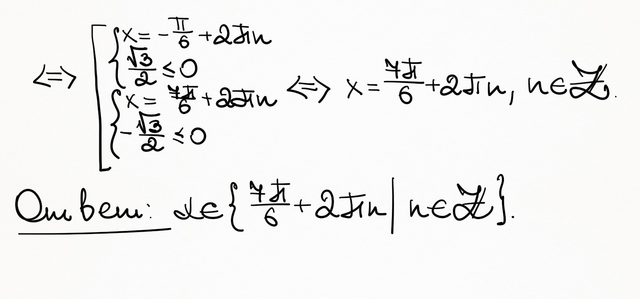 x = -π/6 + 2πn
√3/2 ≤ 0
⟺ x = 7π/6 + 2πn ⟺ x = 7π/6 + 2πn, n ∈ ℤ.
-√3/2 ≤ 0
Ответ: x ∈ { 7π/6 + 2πn | n ∈ ℤ }.